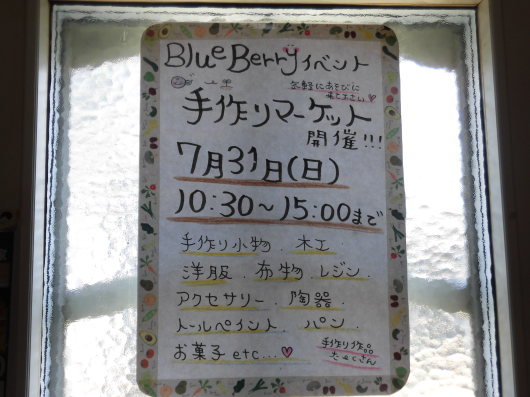 BlueBerryイベント
気軽にあそびに
来て下さい♡
手作りマーケット
開催!!!
7月31日(日)
10:30～15:00まで
手作り小物. 木工.
洋服. 布物. レジン.
アクセサリー. 陶器.
トールペイント. パン.
お菓子etc...♡
手作り作品
たくさん